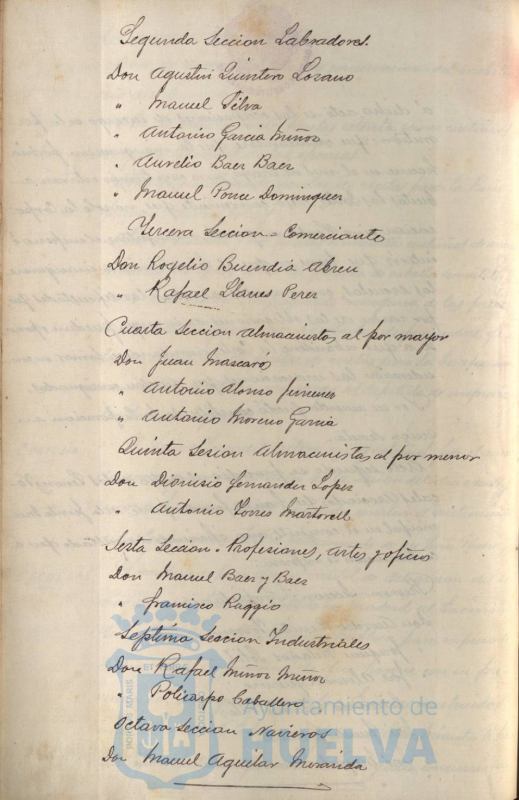 Segunda Seccion Labradores.
Don Agustin Quintero Lozano
" Manuel Silva
" Antonio Garcia Muñoz
" Aurelio Baez Baez
" Manuel Ponce Dominguez
Tercera Seccion = Comerciante
Don Rogelio Buendia Abreu
" Rafael Llanes Perez
Cuarta Seccion Almacenistas al por mayor
Don Juan Mascarós
" Antonio Alonso Jimenez
" Antonio Moreno Garcia
Quinta Sesion Almacenistas al por menor
Don Dionisio Fernandez Lopez
" Antonio Torres Martorell
Sexta Seccion. Profesiones, artes y oficios
Don Manuel Baez y Baez
" Francisco Raggio
Septima Seccion Industriales
Don Rafael Muñoz Muñoz
" Policarpo Caballero
Octava Seccion Navieros
Don Manuel Aguilar
Ayuntamiento de
HUELVA